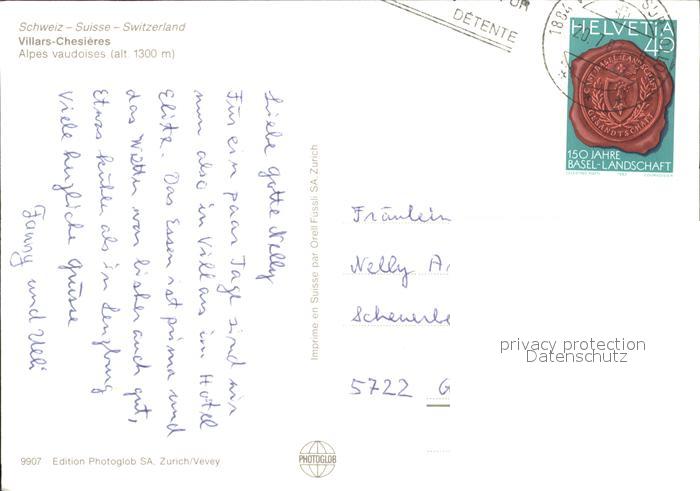 Schweiz – Suisse – Switzerland
Villars-Chesières
Alpes vaudoises (alt. 1300 m)
DÉTENTE
1884
HELVETIA
40
GESANDTSCHAFT
150 JAHRE
BASEL-LANDSCHAFT
COURVOISIER
Liebe Gotte Nelly
Für ein paar Tage sind wir
nun also in Villars im Hotel
Elite. Das Essen ist prima und
das Wetter war bisher auch gut,
Etwas kühler als in Lenzburg
Viele herzliche Grüsse
Fanny und Ueli
Imprimé en Suisse par Orell Füssli SA Zurich
Fräulein
Nelly
5722 G
privacy protection
Datenschutz
9907 Edition Photoglob SA, Zurich/Vevey
PHOTOGLOB